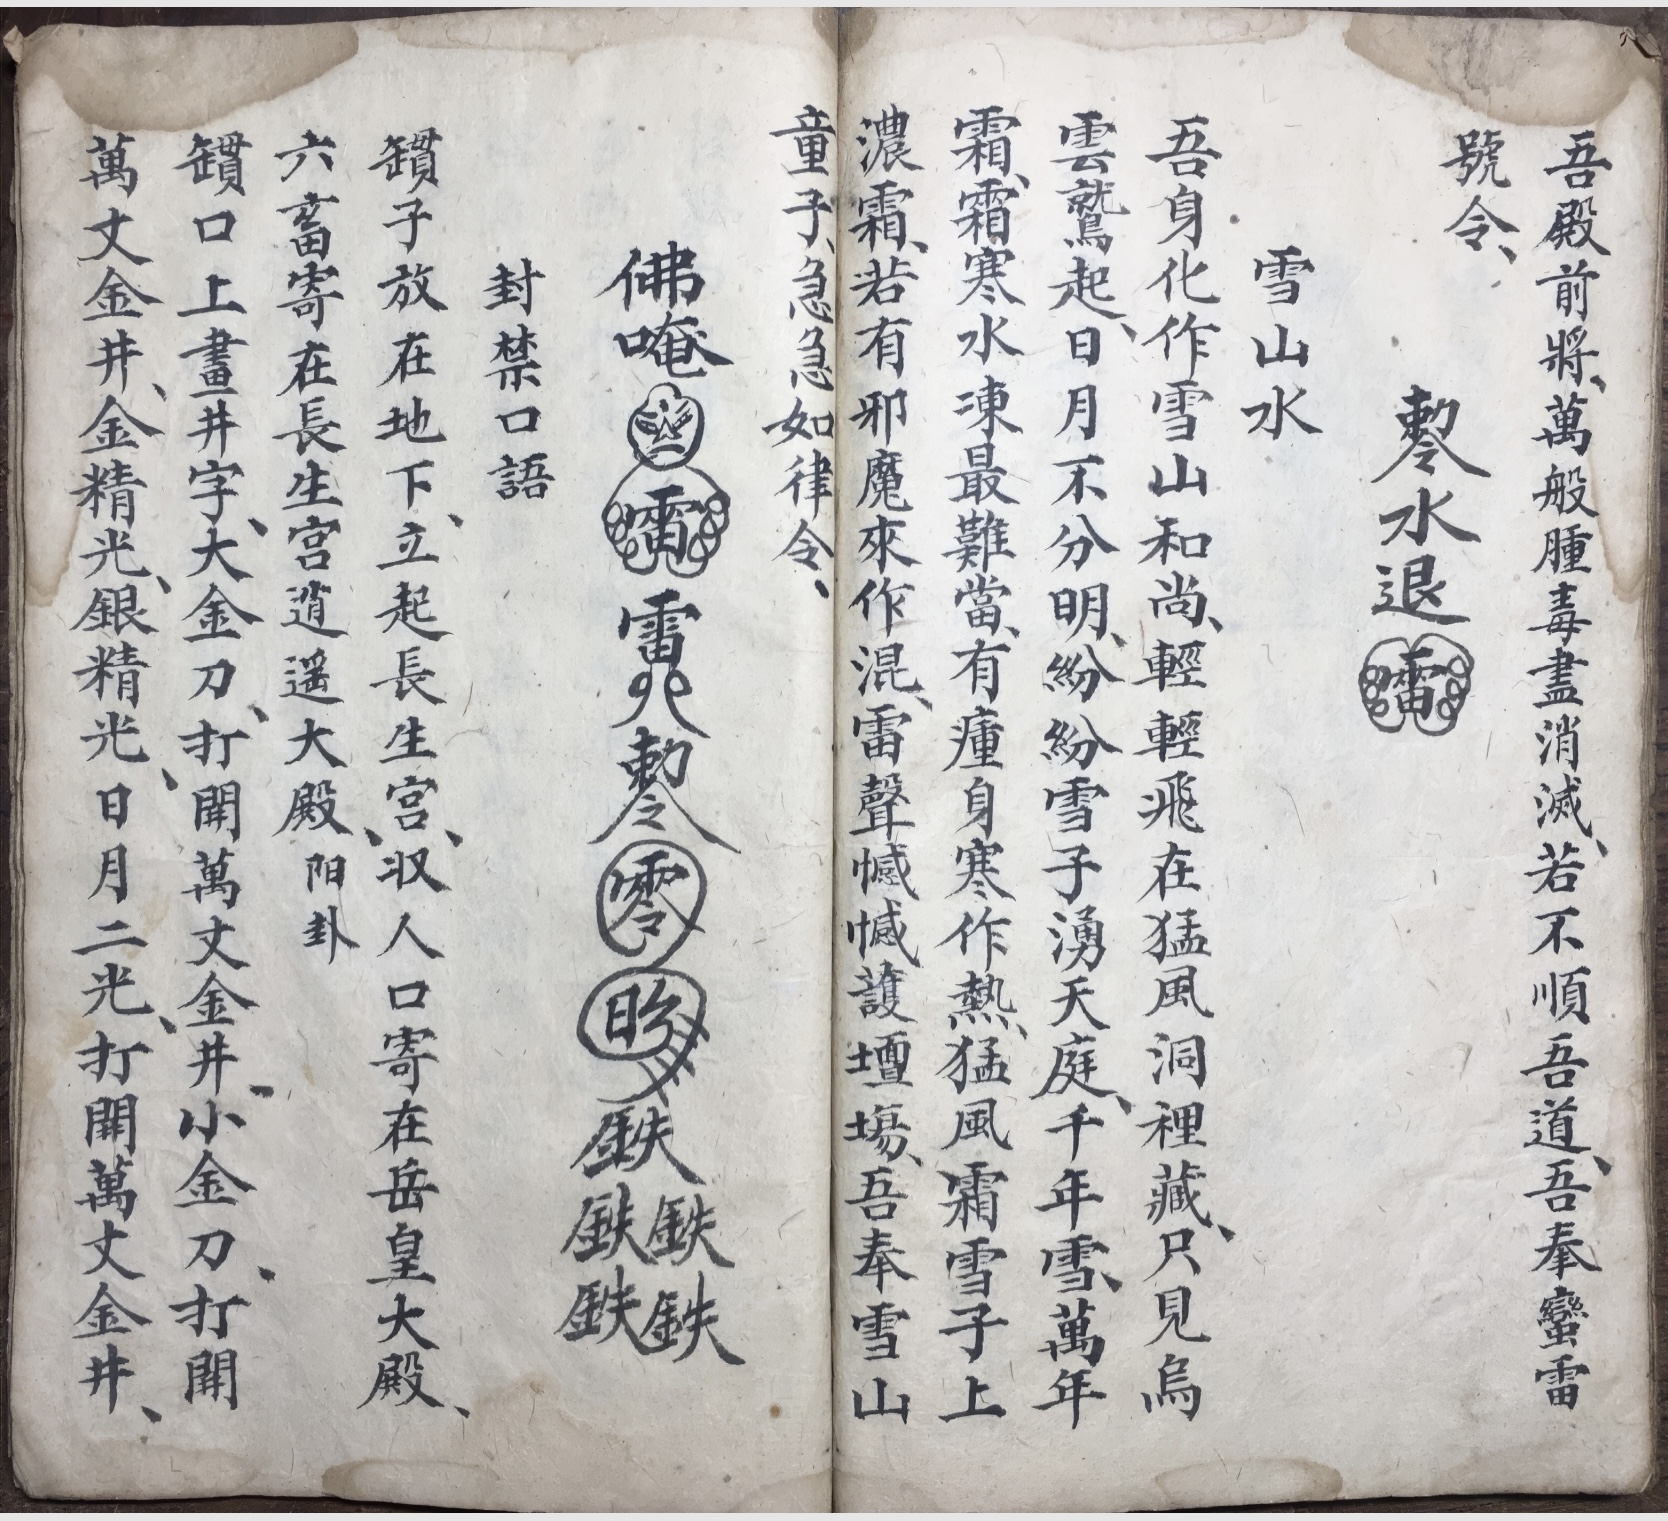 吾殿前將、萬般腫毒盡消滅、若不順吾道、吾奉蠻雷
號令、
勅令水退雷
雪山水
吾身化作雪山和尚、輕輕飛在猛風洞裡藏、只見烏
雲鵞起、日月不分明、紛紛雪子湧天庭、千年雪、萬年
霜、霜寒水凍最難當、有瘇身寒作熱、猛風霜雪子上
濃霜、若有邪魔來作混、雷聲憾憾護壇場、吾奉雪山
童子、急急如律令、
佛唵雷雷勅令零鉄鉄鉄鉄鉄
封禁口語
鑵子放在地下、立起長生宮、収人口寄在岳皇大殿、
六畜寄在長生宮逍遥大殿、阳卦
鑵口上畫井字、大金刀、打開萬丈金井、小金刀、打開
萬丈金井、金精光、銀精光、日月二光、打開萬丈金井、